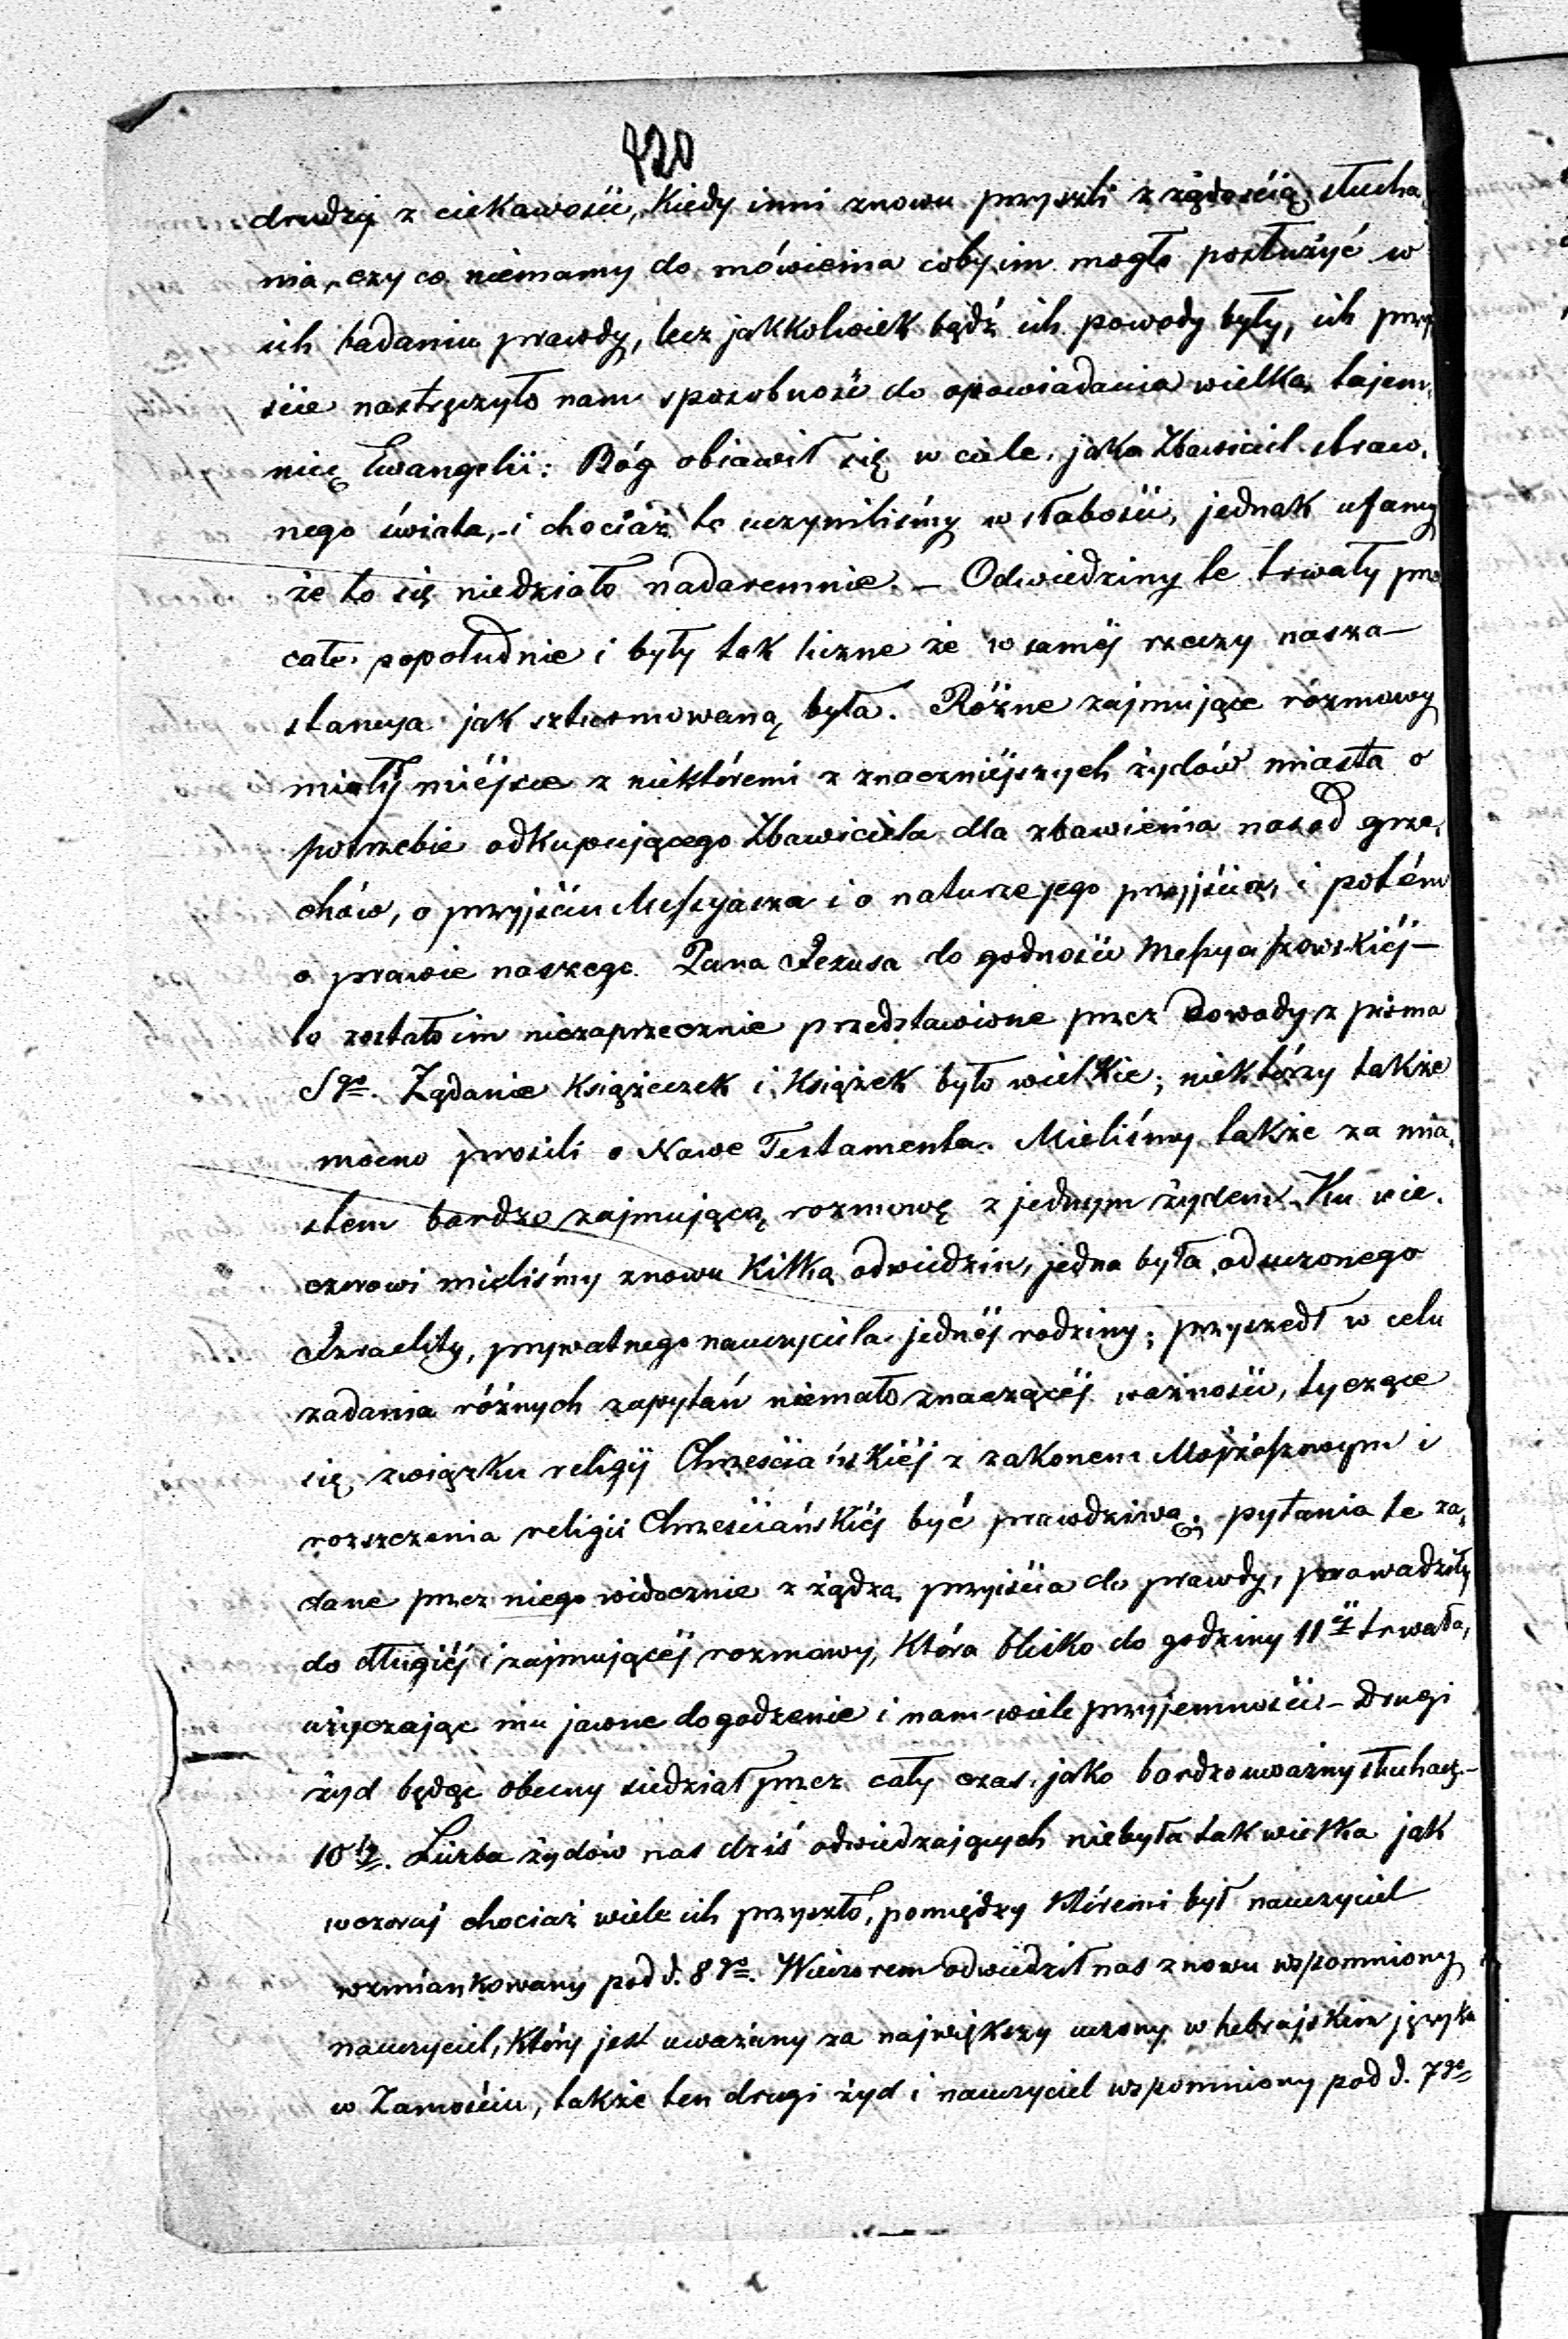 420
drudzy z ciekawości, Kiedy inni znowu przyszli z żądością słucha,
nia, czy co niemamy do mówienia coby im mogło posłużyć w
ich badaniu prawdy, lecz jakkolwiek bądź ich powody były, ich przy
ście nastręczyło nam sposobność do opowiadania wielką tajem,
nicę Ewangelii: Bóg obiawił się w ciele, jako Zbawiciel straw,
nego świata, - i chociaż to uczyniliśmy w słabości, jednak ufamy
że to się niedziało nadaremnie. - Odwiedziny te trwały prz
całe popołudnie i były tak liczne że w saméj rzeczy nasza -
stancya jak szturmowaną była. Różne zajmujące rozmowy
miały miéjsce z niektóremi z znaczniéjszych żydów miasta o
potrzebie odkupującego Zbawiciela dla zbawienia nas od grze,
chów, o przyjściu Messyasza i o naturze jego przyjścia, i potém
o prawie naszego Pana Jezusa do godności Messyaszowskiéj -
to zostało im niezaprzecznie przedstawione przez dowody z pisma
Sgo. Żądanie Książeczek i Książek było wielkie; niektórzy także
mocno prosili o Nowe Testamenta. Mieliśmy także za mia,
stem bardzo zajmującą rozmowę z jednym żydem. Ku wie,
czorowi mieliśmy znowu Kilka odwiedzin, jedna była od uczonego
Izraelity, prywatnego nauczyciela jednéj rodziny; przyszedł w celu
zadania różnych zapytań niemało znaczącéj ważności, tyczące
się związku religij Chrześciańskiéj z zakonem Mojżeszowym i
roszczenia religii Chrześciańskiéj być prawdziwą; pytania te za,
dane przez niego widocznie z żądzą przyiścia do prawdy, prowadziły
do długiéj i zajmującéj rozmowy, Która blisko do godziny 11éj trwała,
użyczając mu jawne dogodzenie i nam wiele przyjemności - Drugi
żyd będąc obecny siedział przez cały czas, jako bardzo uważny słuchacz. -
10go. Liczba żydów nas dziś odwiedzających niebyła tak wielka jak
wczoraj chociaż wiele ich przyszło, pomiędzy Któremi był nauczyciel
wzmiankowany pod d. 8go. Wieczorem odwiedził nas znowu wspomniony
nauczyciel, Który jest uważany za największy uczony w hebrajskim języku
w Zamościu, także ten drugi żyd i nauczyciel wspomniony pod d. 7go